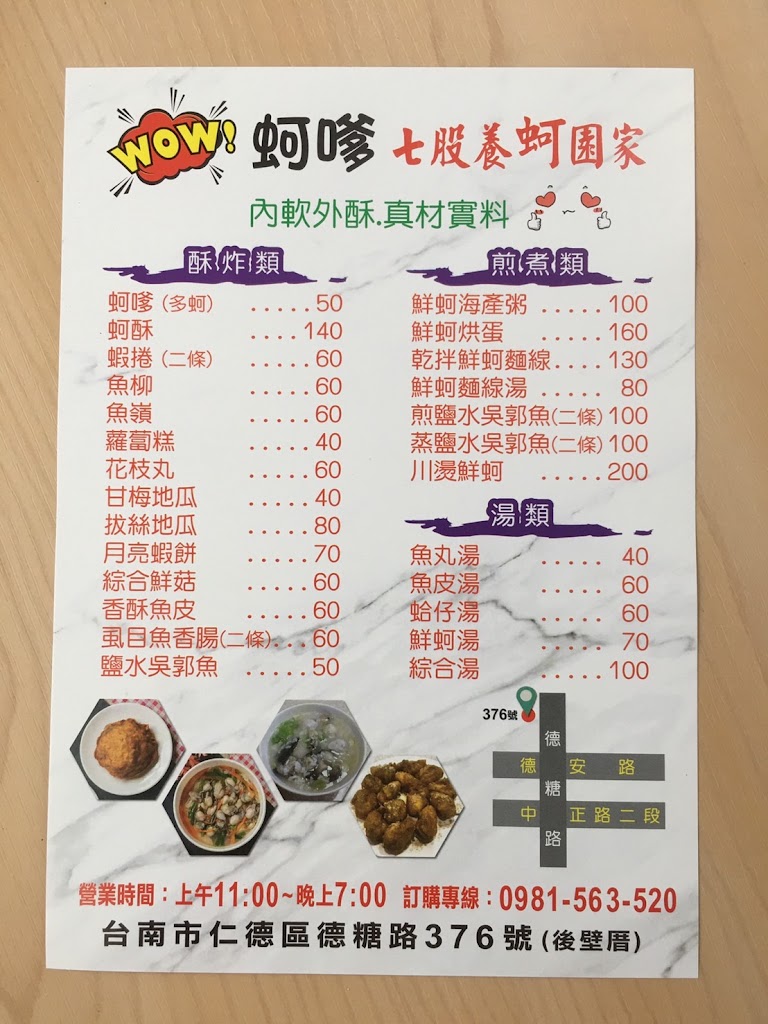 WOW!
蚵嗲 七股養蚵囝家
內軟外酥.真材實料
酥炸類
蚵嗲 (多蚵) .....50
蚵酥 ....140
蝦捲 (二條) .....60
魚柳 .....60
魚嶺 .....60
蘿蔔糕 .....40
花枝丸 .....60
甘梅地瓜 .....40
拔絲地瓜 .....80
月亮蝦餅 .....70
綜合鮮菇 .....60
香酥魚皮 .....60
虱目魚香腸(二條)...60
鹽水吳郭魚 .....50
煎煮類
鮮蚵海產粥 .....100
鮮蚵烘蛋 .....160
乾拌鮮蚵麵線....130
鮮蚵麵線湯 ..... 80
煎鹽水吳郭魚(二條)100
蒸鹽水吳郭魚(二條)100
川燙鮮蚵 .....200
湯類
魚丸湯 ..... 40
魚皮湯 ..... 60
蛤仔湯 ..... 60
鮮蚵湯 ..... 70
綜合湯 .....100
376號
德糖路
德安路
中正路二段
營業時間：上午11:00~晚上7:00 訂購專線：0981-563-520
台南市仁德區德糖路376號(後壁厝)